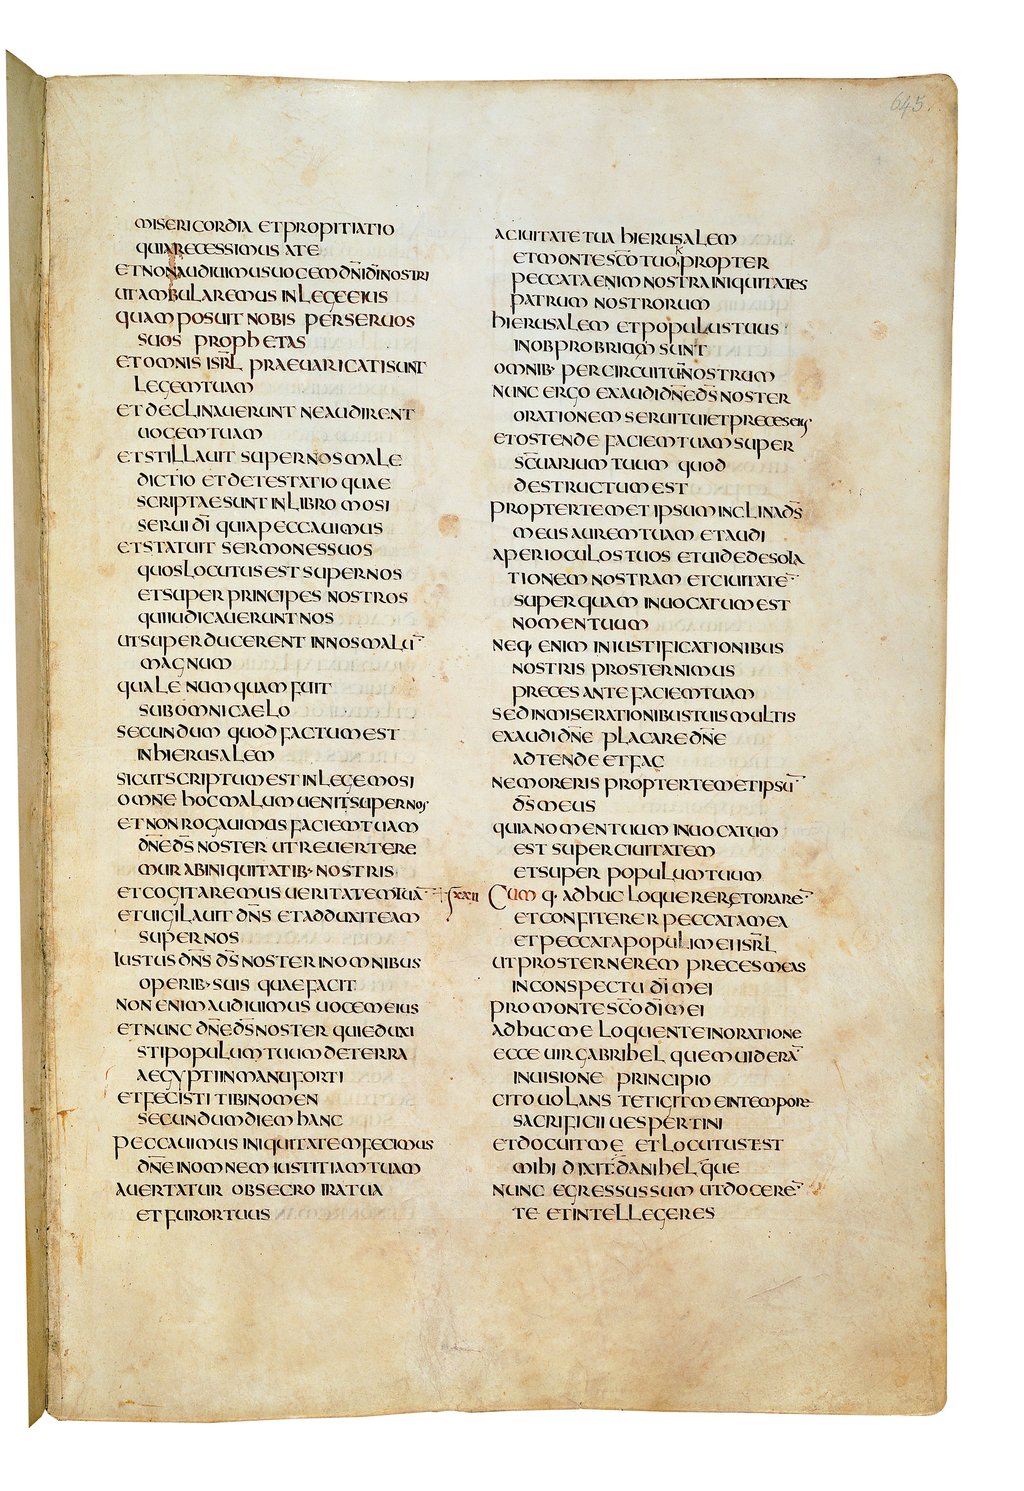 645.
MISERICORDIA ET PROPITIATIO
QUIA RECESSIMUS A TE
ET NON AUDIUIMUS UOCEM DN̄I DĪ NOSTRI
UT AMBULAREMUS IN LEGE EIUS
QUAM POSUIT NOBIS PER SERUOS
SUOS PROPHETAS
ET OMNIS ISRL̄ PRAEUARICATI SUNT
LEGEM TUAM
ET DECLINAUERUNT NE AUDIRENT
UOCEM TUAM
ET STILLAUIT SUPER NOS MALE
DICTIO ET DETESTATIO QUAE
SCRIPTAE SUNT IN LIBRO MOSI
SERUI DĪ QUIA PECCAUIMUS
ET STATUIT SERMONES SUOS
QUOS LOCUTUS EST SUPER NOS
ET SUPER PRINCIPES NOSTROS
QUI IUDICAUERUNT NOS
UT SUPERDUCERENT IN NOS MALŪ
MAGNUM
QUALE NUMQUAM FUIT
SUB OMNI CAELO
SECUNDUM QUOD FACTUM EST
IN HIERUSALEM
SICUT SCRIPTUM EST IN LEGE MOSI
OMNE HOC MALUM UENIT SUPER NOS
ET NON ROGAUIMUS FACIEM TUAM
DN̄E DS̄ NOSTER UT REUERTERE
MUR AB INIQUITATIB· NOSTRIS
ET COGITAREMUS UERITATEM TUĀ
ET UIGILAUIT DN̄S ET ADDUXIT EAM
SUPER NOS
IUSTUS DN̄S DS̄ NOSTER IN OMNIBUS
OPERIB· SUIS QUAE FACIT
NON ENIM AUDIUIMUS UOCEM EIUS
ET NUNC DN̄E DS̄ NOSTER QUI EDUXI
STI POPULUM TUUM DE TERRA
AEGYPTI IN MANU FORTI
ET FECISTI TIBI NOMEN
SECUNDUM DIEM HANC
PECCAUIMUS INIQUITATEM FECIMUS
DN̄E IN OMNEM IUSTITIAM TUAM
AUERTATUR OBSECRO IRA TUA
ET FUROR TUUS
A CIUITATE TUA HIERUSALEM
ET MONTE SC̄O TUO PROPTER
PECCATA ENIM NOSTRA INIQUITATES
PATRUM NOSTRORUM
HIERUSALEM ET POPULUS TUUS
IN OBPROBRIUM SUNT
OMNIB· PER CIRCUITUM NOSTRUM
NUNC ERGO EXAUDI DN̄E DS̄ NOSTER
ORATIONEM SERUI TUI ET PRECES EIUS
ET OSTENDE FACIEM TUAM SUPER
SC̄UARIUM TUUM QUOD
DESTRUCTUM EST
PROPTER TEMET IPSUM INCLINA DS̄
MEUS AUREM TUAM ET AUDI
APERI OCULOS TUOS ET UIDE DESOLA
TIONEM NOSTRAM ET CIUITATĒ
SUPER QUAM INUOCATUM EST
NOMEN TUUM
NEQ· ENIM IN IUSTIFICATIONIBUS
NOSTRIS PROSTERNIMUS
PRECES ANTE FACIEM TUAM
SED IN MISERATIONIBUS TUIS MULTIS
EXAUDI DN̄E PLACARE DN̄E
ADTENDE ET FAC
NE MORERIS PROPTER TEMET IPSŪ
DS̄ MEUS
QUIA NOMEN TUUM INUOCATUM
EST SUPER CIUITATEM
ET SUPER POPULUM TUUM
XXII CUM Q· ADHUC LOQUERER ET ORARĒ
ET CONFITERER PECCATA MEA
ET PECCATA POPULI MEI ISRL̄
UT PROSTERNEREM PRECES MEAS
IN CONSPECTU DĪ MEI
PRO MONTE SC̄O DĪ MEI
ADHUC ME LOQUENTE IN ORATIONE
ECCE UIR GABRIHEL QUEM UIDERĀ
IN UISIONE PRINCIPIO
CITO UOLANS TETIGIT ME IN TEMPORE
SACRIFICII UESPERTINI
ET DOCUIT ME ET LOCUTUS EST
MIHI DIXIT DANIHEL QUE
NUNC EGRESSUS SUM UT DOCERĒ
TE ET INTELLEGERES